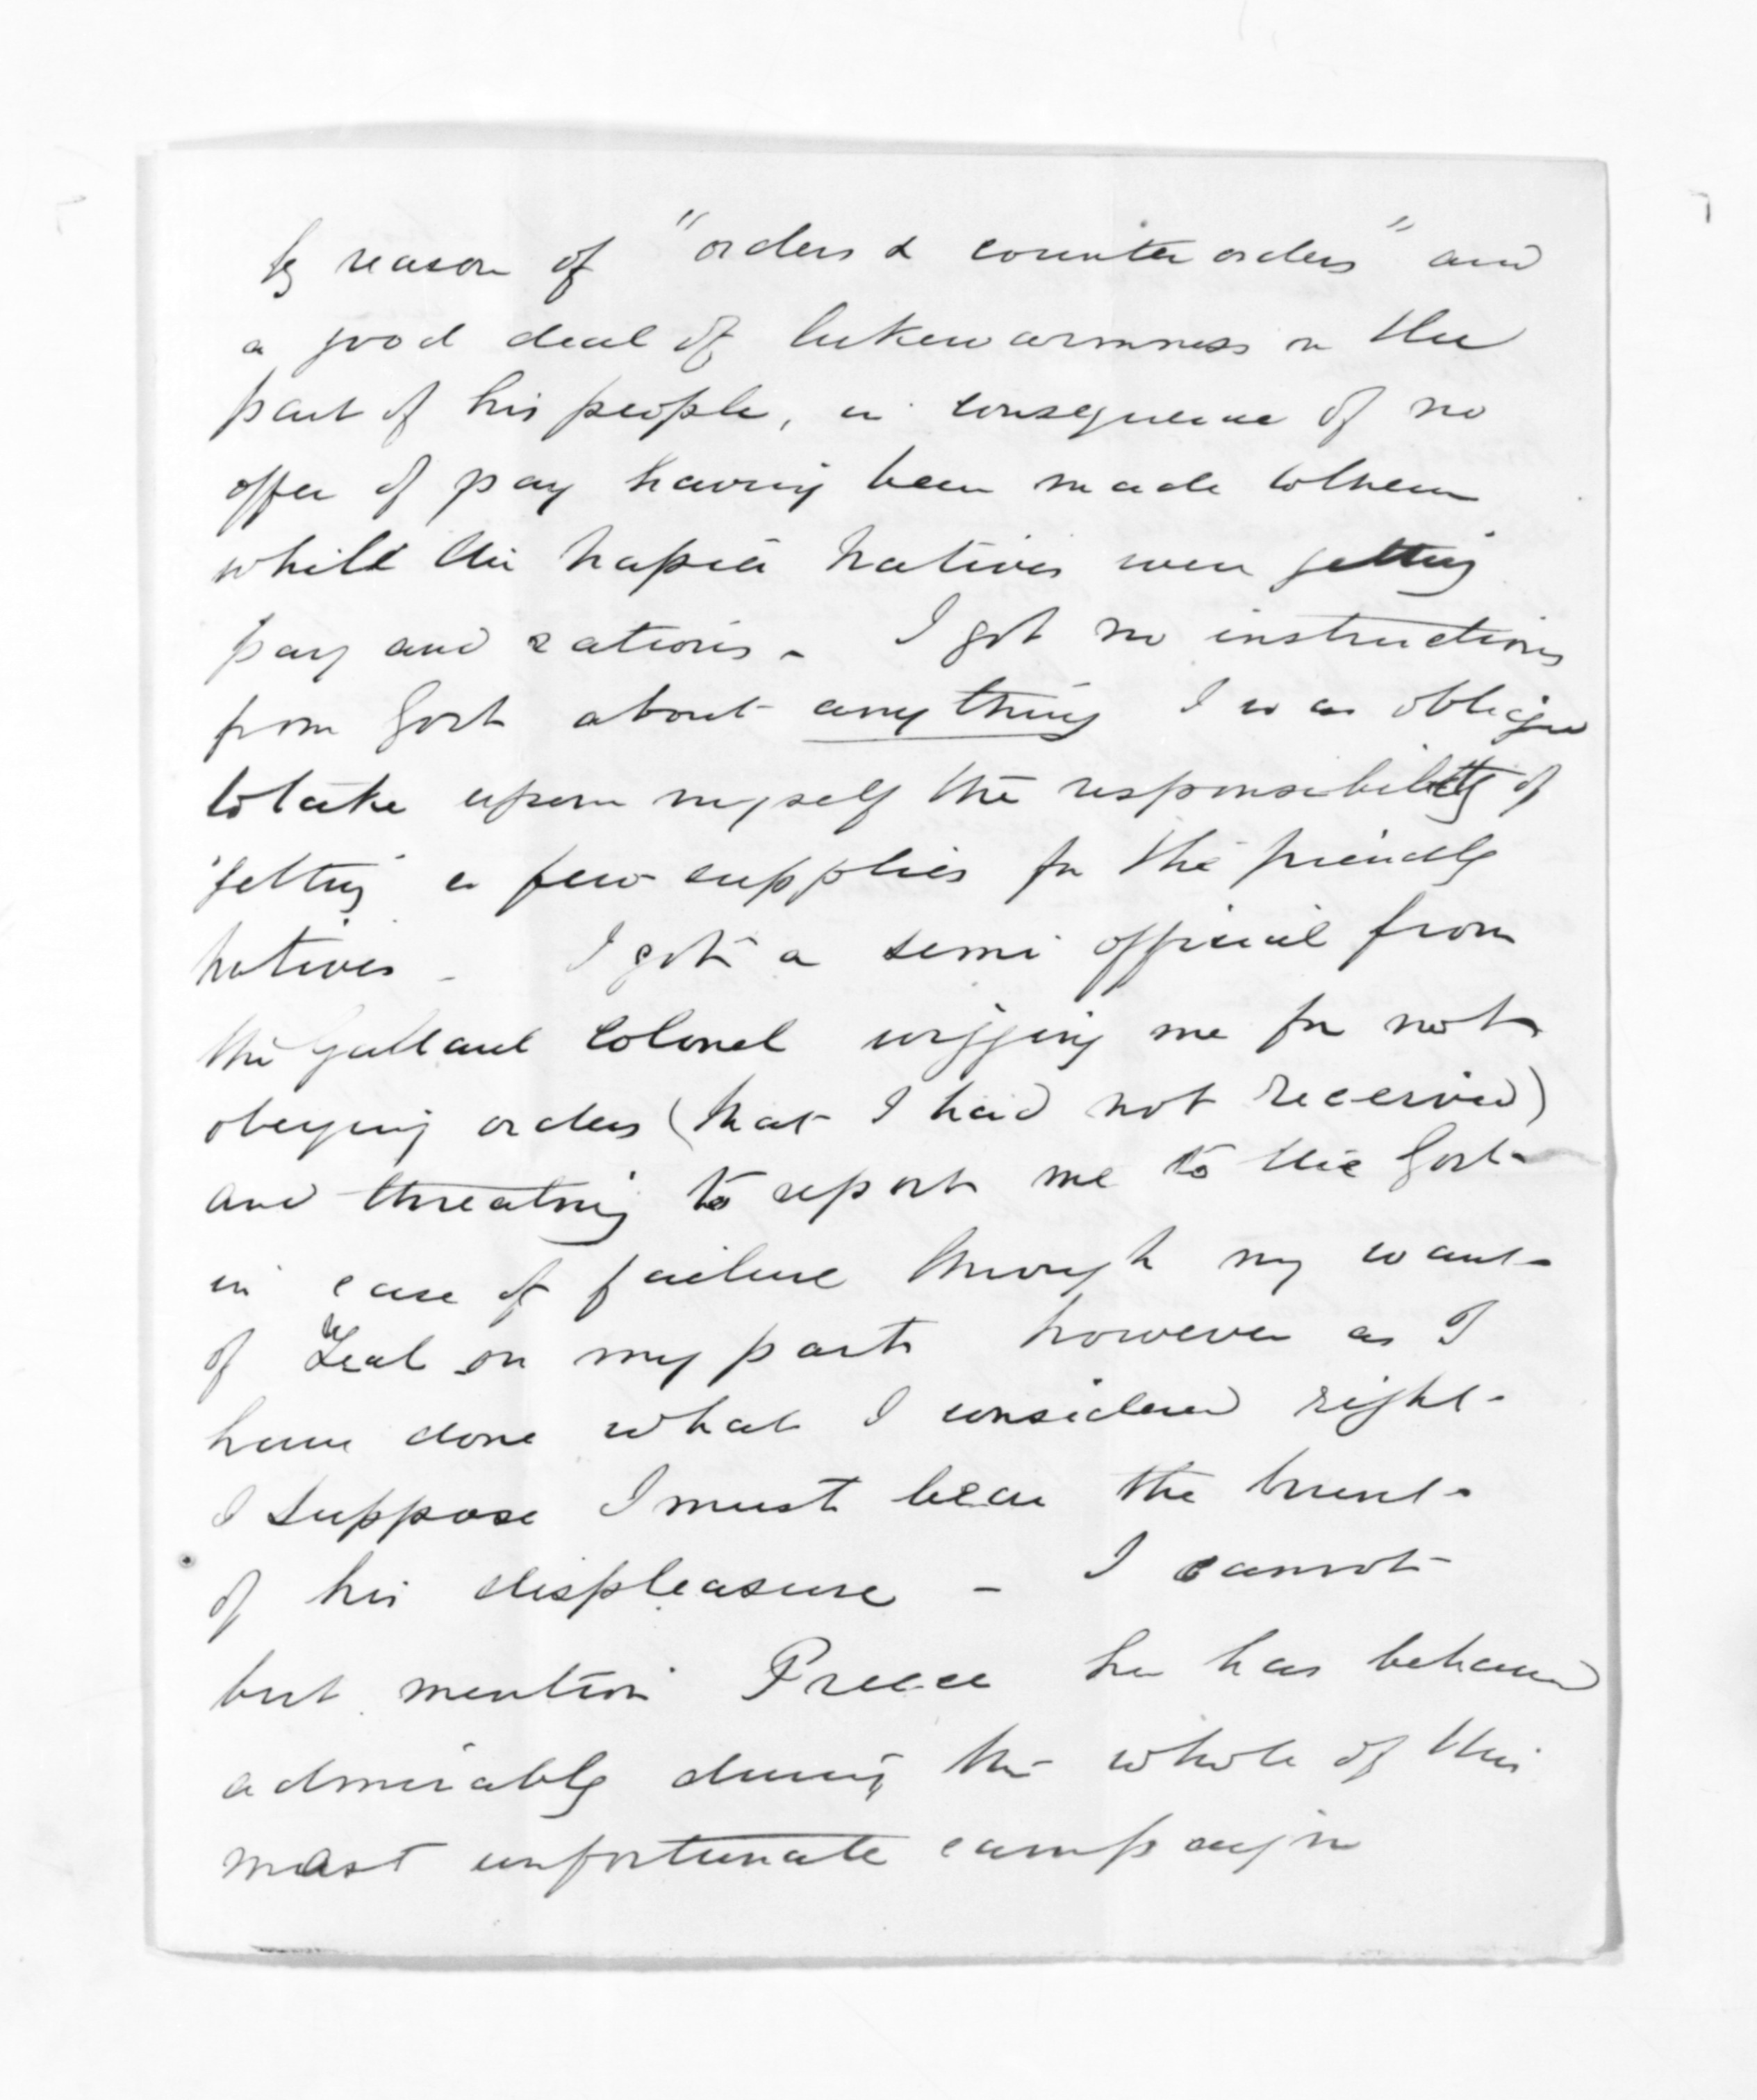 by reason of "orders & counter orders" and
a good deal of lukewarmness on the
part of his people, in consequence of no
offer of pay having been made to them
whilst the Napier Natives were getting
pay and rations - I got no instructions
from Govt about anything I was obliged
to take upon myself the responsibility of
getting a few supplies for the friendly
natives - I got a semi official from
the Gallant Colonel wigging me for not
obeying orders (that I had not received)
and threatning to report me to the Govt
in case of failure through my want
of Zeal on my part however as I
have done what I considered right -
I suppose I must bear the brunt -
of his displeasure - I cannot
but mention Preece he has behaved
admirably during the whole of this
most unfortunate campaign